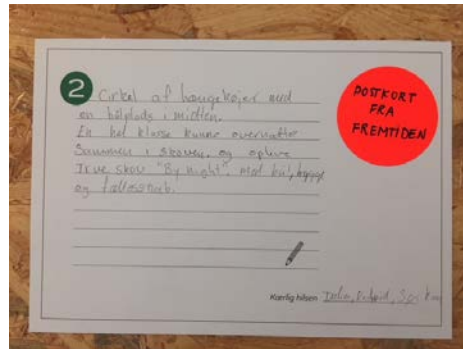 2
Cirkel af hængekøjer med
en bålplads i midten.
En hel klasse kunne overnatte
sammen i skoven, og opleve
True skov "By night", med bål, hygge
og fællesskab.
POSTKORT
FRA
FREMTIDEN
Kærlig hilsen